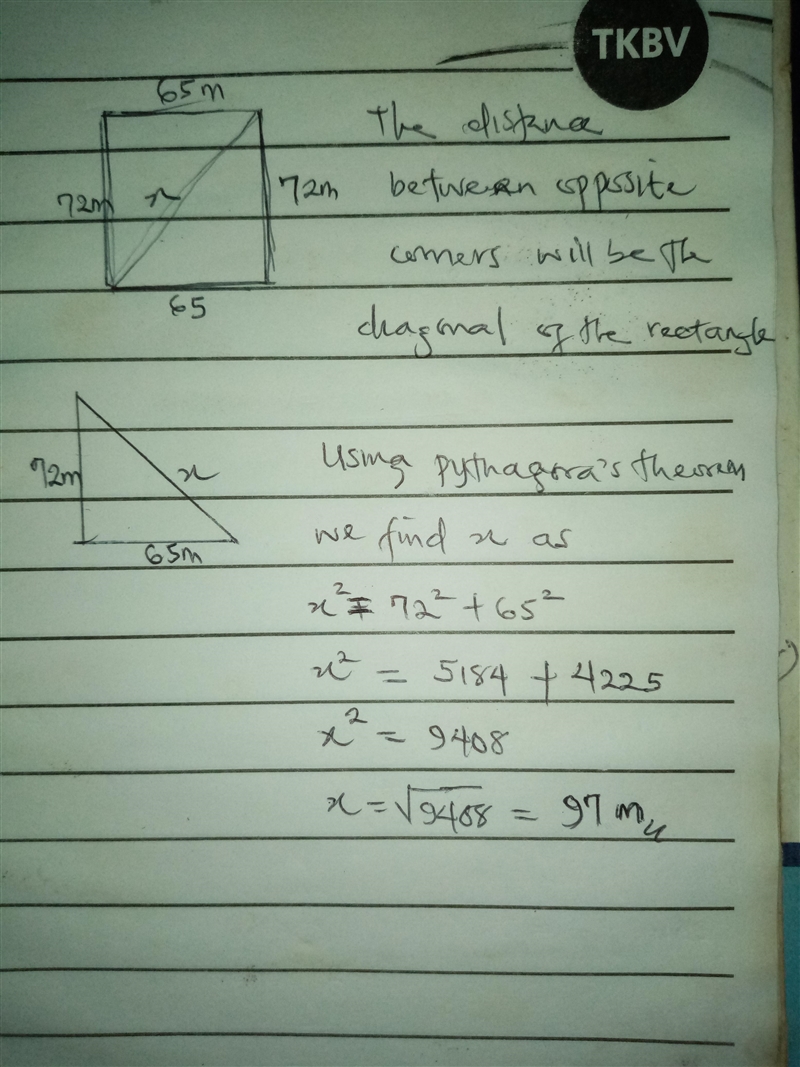 TKBV
65m
72m
x
72m
65
The distance
between opposite
corners will be the
diagonal of the rectangle
72m
x
65m
Using pythagora's theorem
we find x as
x² = 72² + 65²
x² = 5184 + 4225
x² = 9408
x = √9408 = 97 m